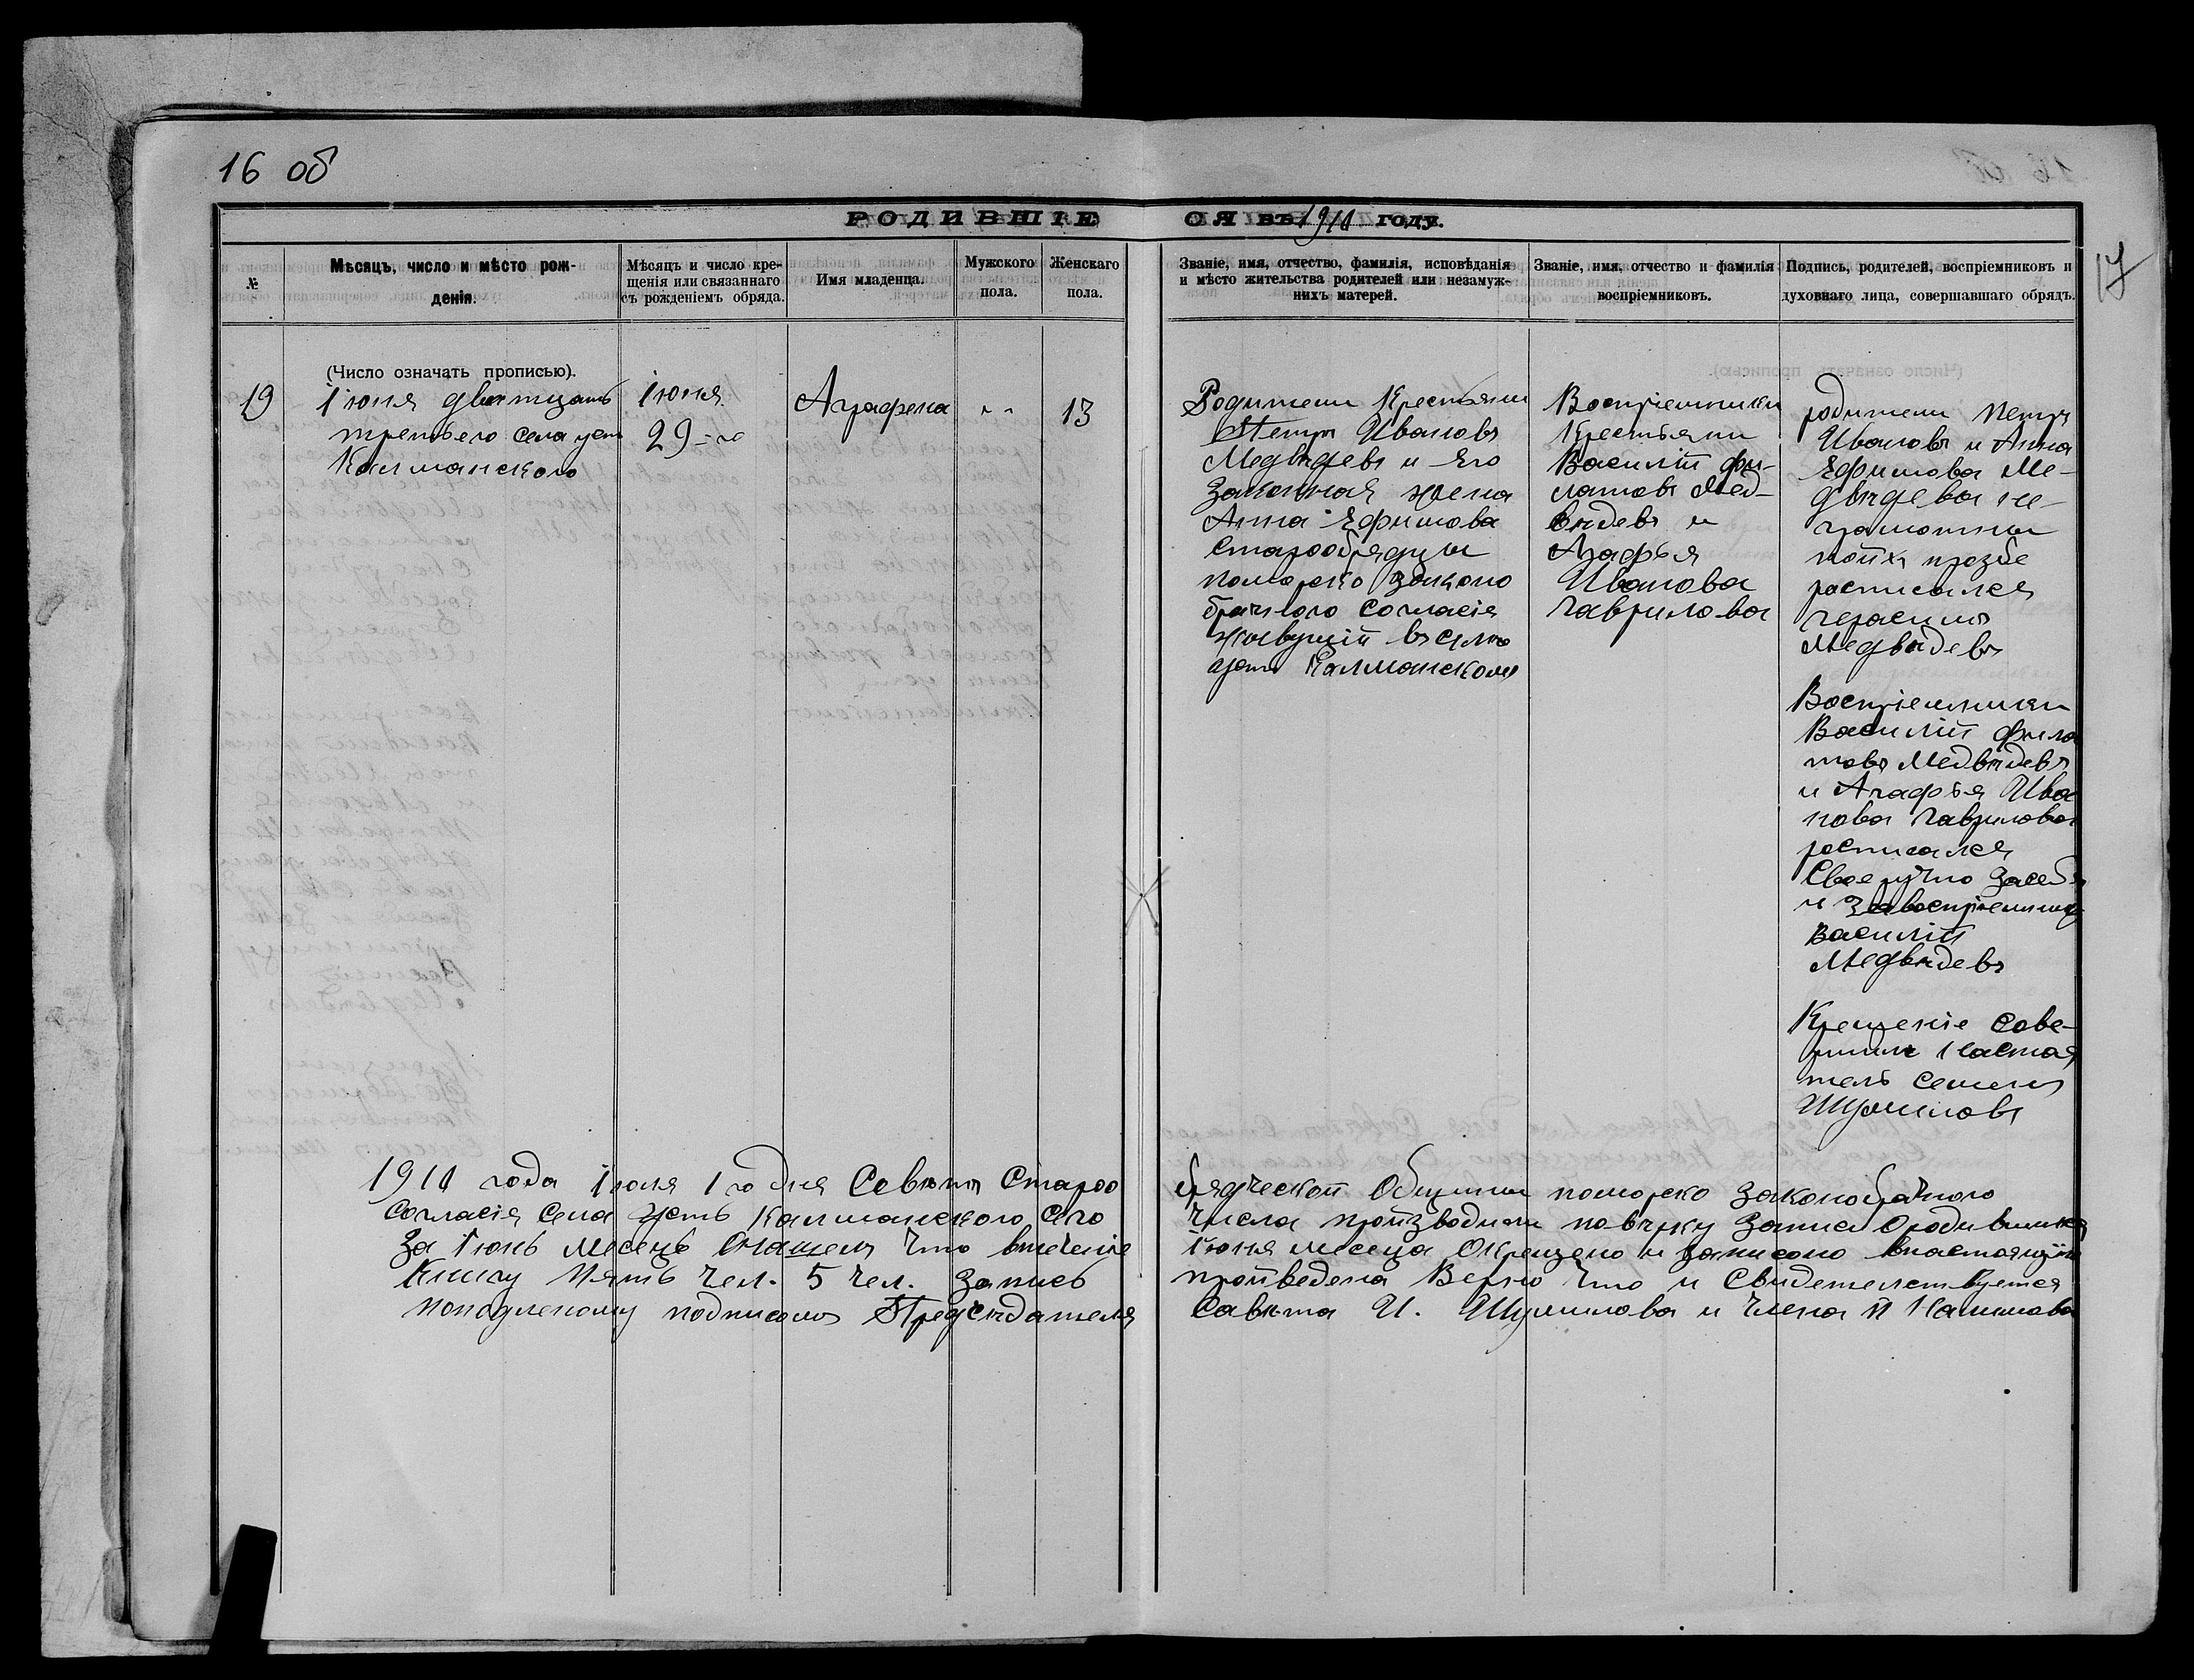 16 об
РОДИВШІЕ СЯ въ 1911 году.
17
№
Мѣсяцъ, число и мѣсто рож-
денія.
Мѣсяцъ и число кре-
щенія или связаннаго
съ рожденіемъ обряда.
Имя младенца.
Мужского
пола.
Женскаго
пола.
Званіе, имя, отчество, фамилія, исповѣданія
и мѣсто жительства родителей или незамуж-
нихъ матерей.
Званіе, имя, отчество и фамилія
воспріемниковъ.
Подпись, родителей, воспріемниковъ и
духовнаго лица, совершавшаго обрядъ.
(Число означать прописью).
19
Іюня дватцать
третьего села усть
Калманского
Іюня
29-го
Аграфена
" "
13
Родители Крестьяни
Петръ Ивановъ
Медвѣдевъ и Его
Законная жена
Анна Ефимова
Старообрядцы
поморско Законо
брачного Согласія
живущій въ селѣ
усть Калманскомъ
Воспріемники
Крестьяни
Василій Фи-
латовъ Мед-
вѣдевъ и
Агафья
Иванова
Гаврилова
родители Петръ
Ивановъ и Анна
Ефимова Ме-
двѣдева не-
грамотны
поихъ прозбе
росписался
герасимъ
Медвѣдевъ
Воспріемники
Василій Фила
товъ Медвѣдевъ
и Агафья Ива
нова Гаврилова
росписался
Своеручно Засебя
и Завоспріемницу
Василій
Медвѣдевъ
Крещеніе Сове-
ршилъ Настоя
тель Семенъ
Шумиловъ
1911 года Іюля 1 го дня Совѣтъ Староо
брядческой Общины поморско Законобрачного
Согласія Села Усть Калманского Сего
Числа производили повѣрку Записи Ородившихся
За Іюнь Месецъ Онашелъ Что втеченіе
Іюня месеца Окрещено и записано внастоящую
Книгу Пять Чел. 5 чел. Запись
произведена Верно Что и Свидетельствуется
подписомъ Предсѣдателя
Совѣта И. Шумилова и Члена